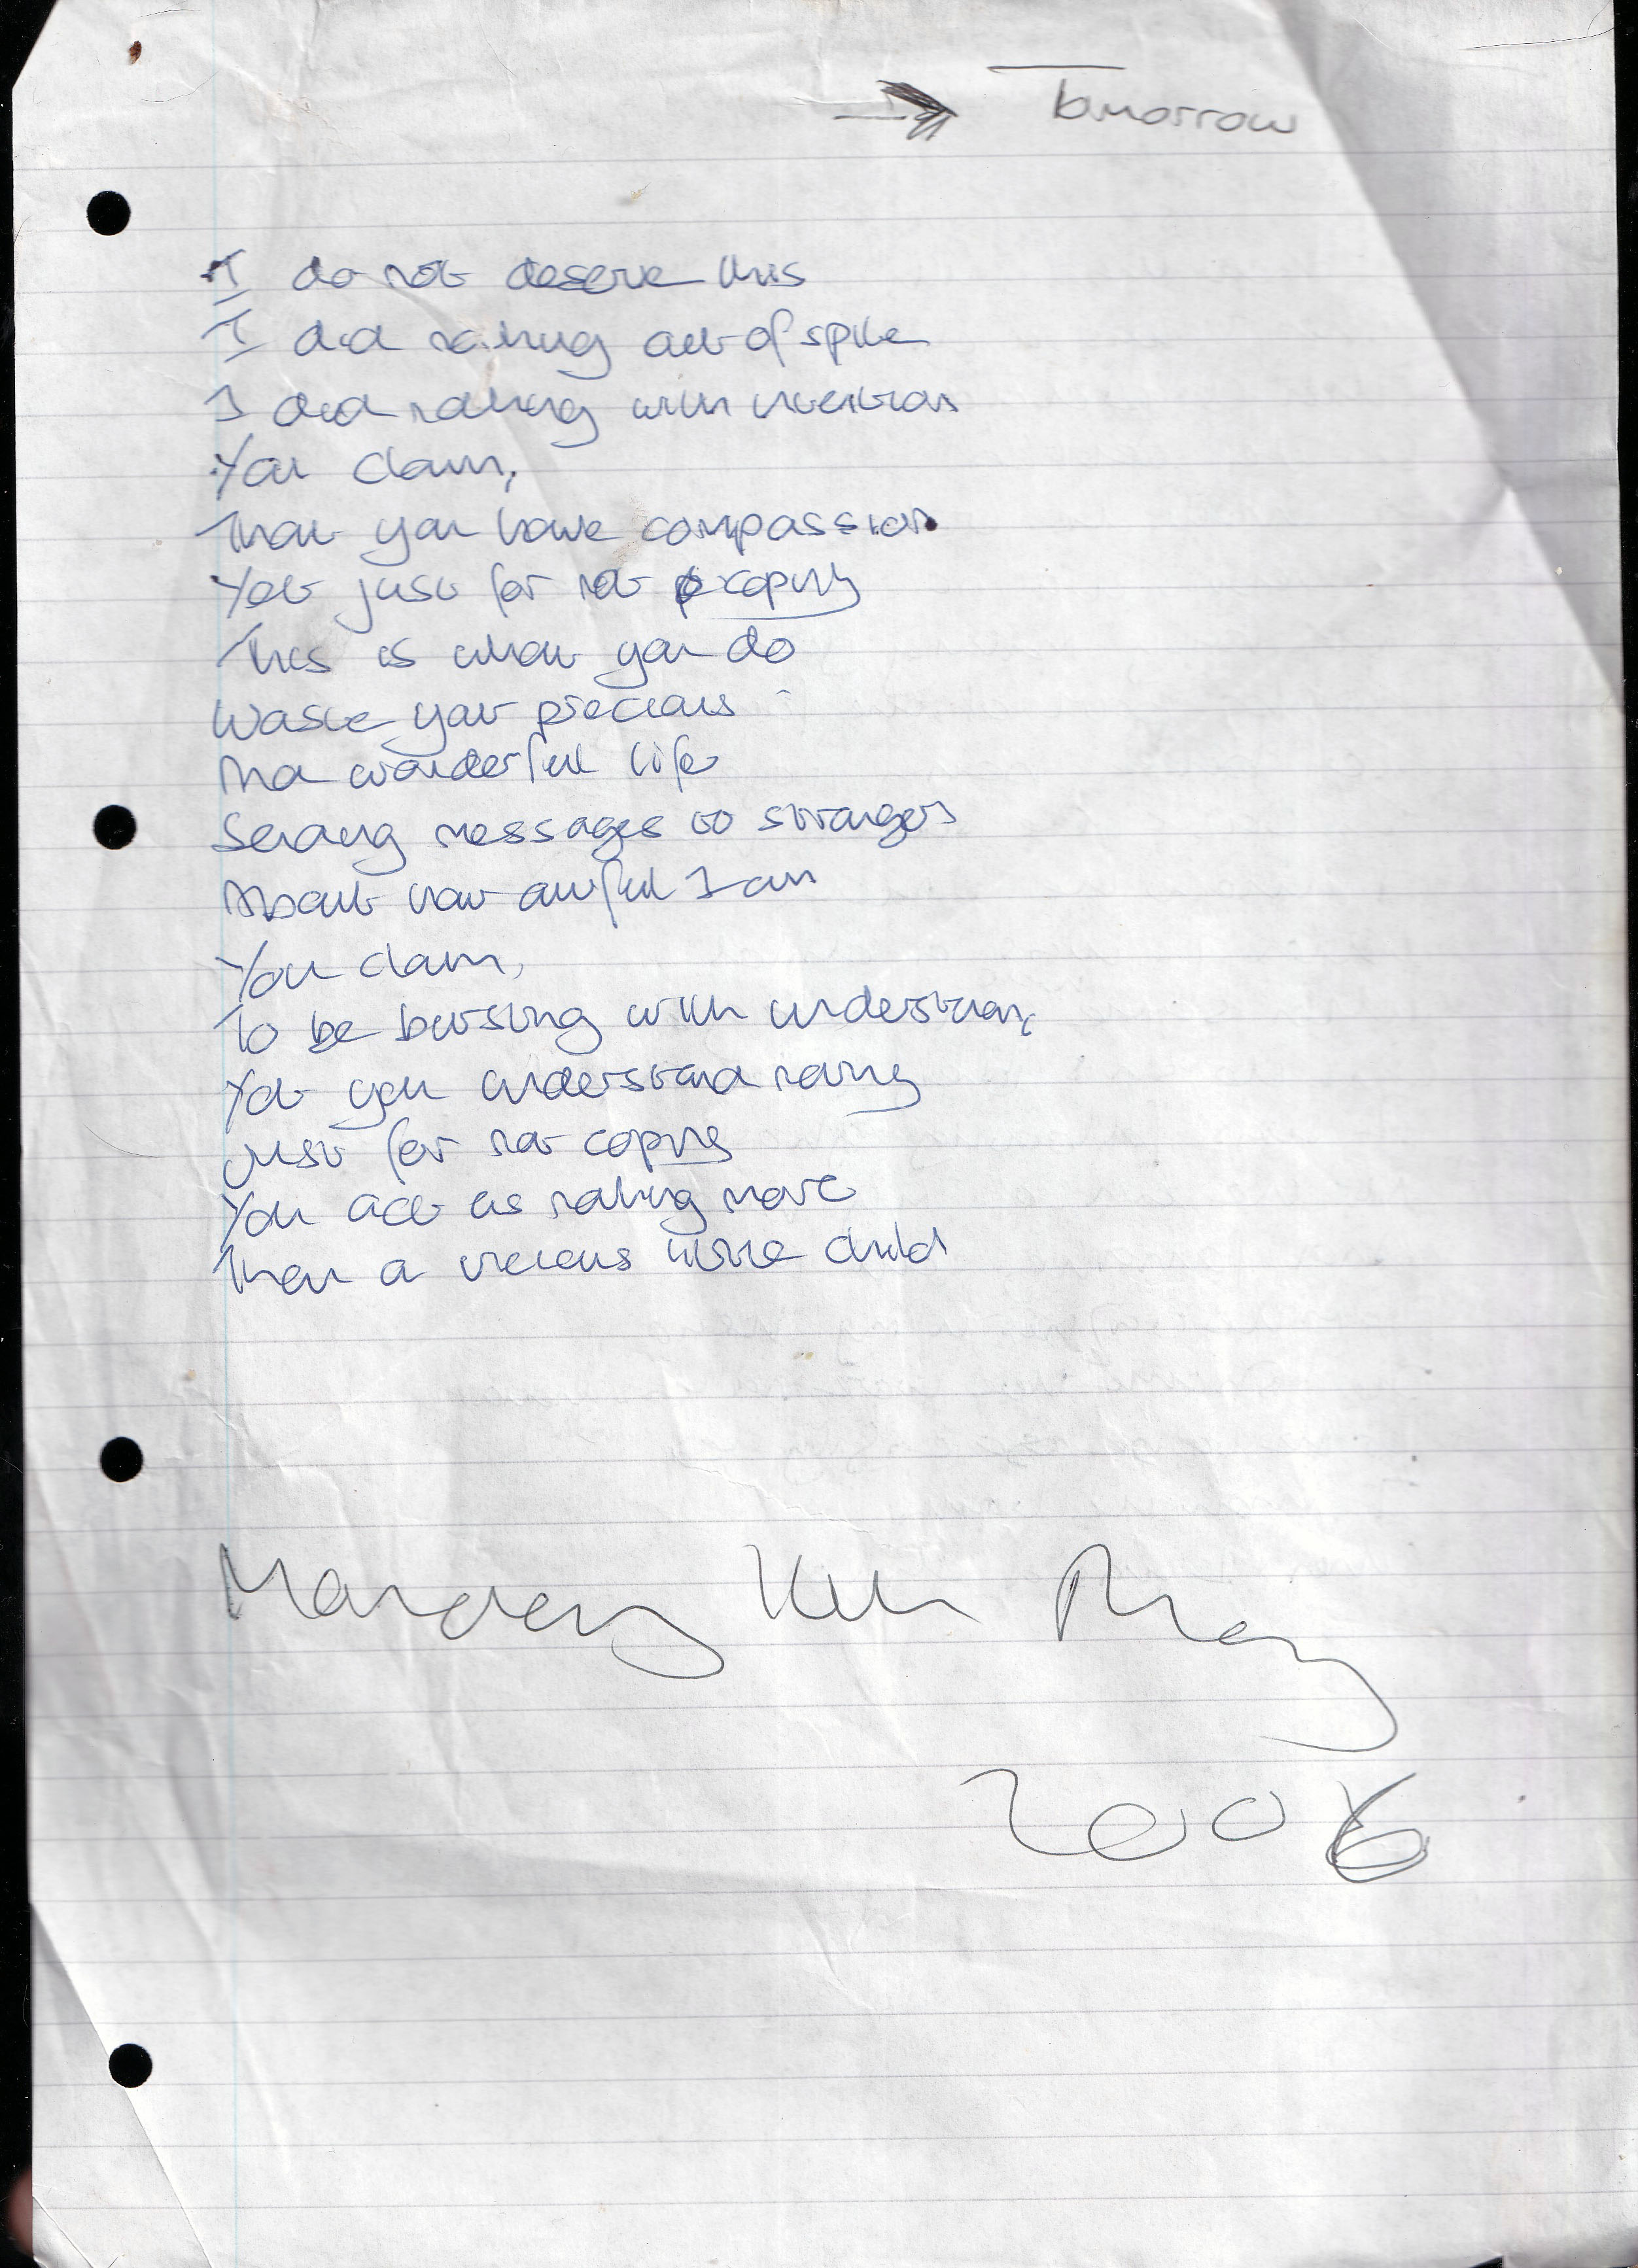 Tomorrow
I do not deserve this
I did nothing out of spite
I did nothing with intention
You claim,
That you have compassion
Yet just for not coping
This is what you do
Waste your precious
And wonderful life
Sending messages to strangers
About how awful I am
You claim,
To be bursting with understan,
Yet you understand nothing
Just for not coping
You act as nothing more
Than a vicious little child
2006